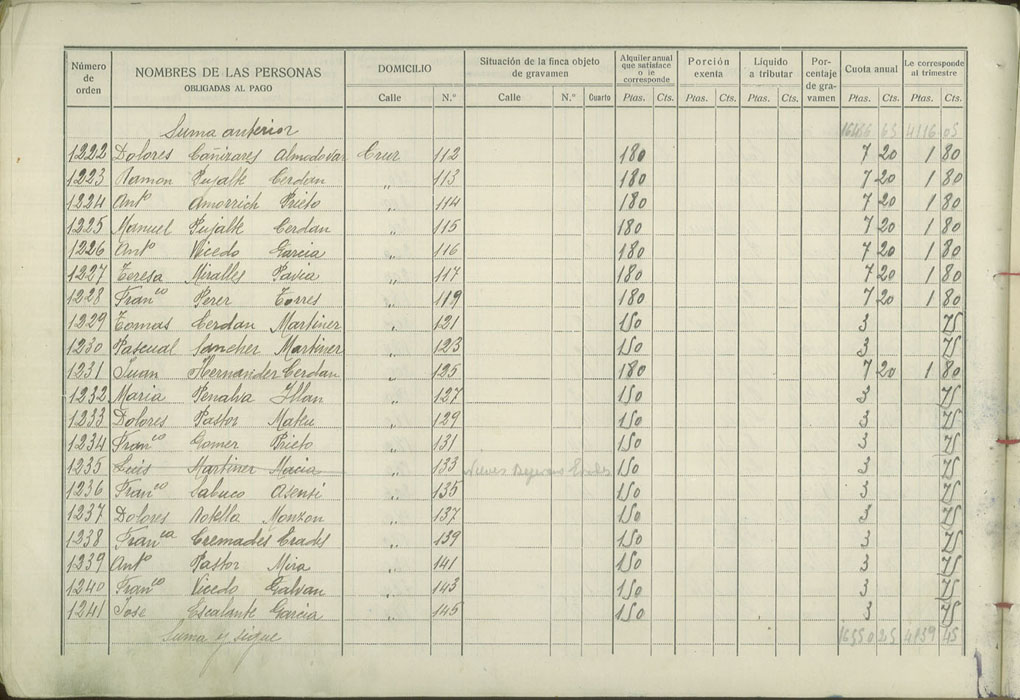 Número de orden NOMBRES DE LAS PERSONAS OBLIGADAS AL PAGO DOMICILIO Situación de la finca objeto de gravamen Alquiler anual que satisface o le corresponde Porción exenta Líquido a tributar Por-centaje de gra-vamen Cuota anual Le corresponde al trimestre
Calle N.º Calle N.º Cuarto Ptas. Cts. Ptas. Cts. Ptas. Cts. Ptas. Cts. Ptas. Cts.
Suma anterior 4116 05
1222 Dolores Cañizares Almodovar Cruz 112 180 7 20 1 80
1223 Ramon Pujalte Cerdan " 113 180 7 20 1 80
1224 Antº Amorrich Prieto " 114 180 7 20 1 80
1225 Manuel Pujalte Cerdan " 115 180 7 20 1 80
1226 Antº Vicedo Garcia " 116 180 7 20 1 80
1227 Teresa Miralles Pavia " 117 180 7 20 1 80
1228 Franco Perez Torres " 119 180 7 20 1 80
1229 Tomas Cerdan Martinez " 121 150 3 75
1230 Pascual Sanchez Martinez " 123 150 3 75
1231 Juan Hernandez Cerdan " 125 180 7 20 1 80
1232 Maria Penalva Yllan " 127 150 3 75
1233 Dolores Pastor Mateu " 129 150 3 75
1234 Franco Gomez Prieto " 131 150 3 75
1235 Luis Martinez Macia " 133 150 3 75
1236 Franco Sabuco Asensi " 135 150 3 75
1237 Dolores Botella Monzon " 137 150 3 75
1238 Franca Cremades Crades " 139 150 3 75
1239 Antº Pastor Mira " 141 150 3 75
1240 Franco Vicedo Galvan " 143 150 3 75
1241 Jose Escalante Garcia " 145 150 3 75
Suma y sigue 16550 25 4139 45